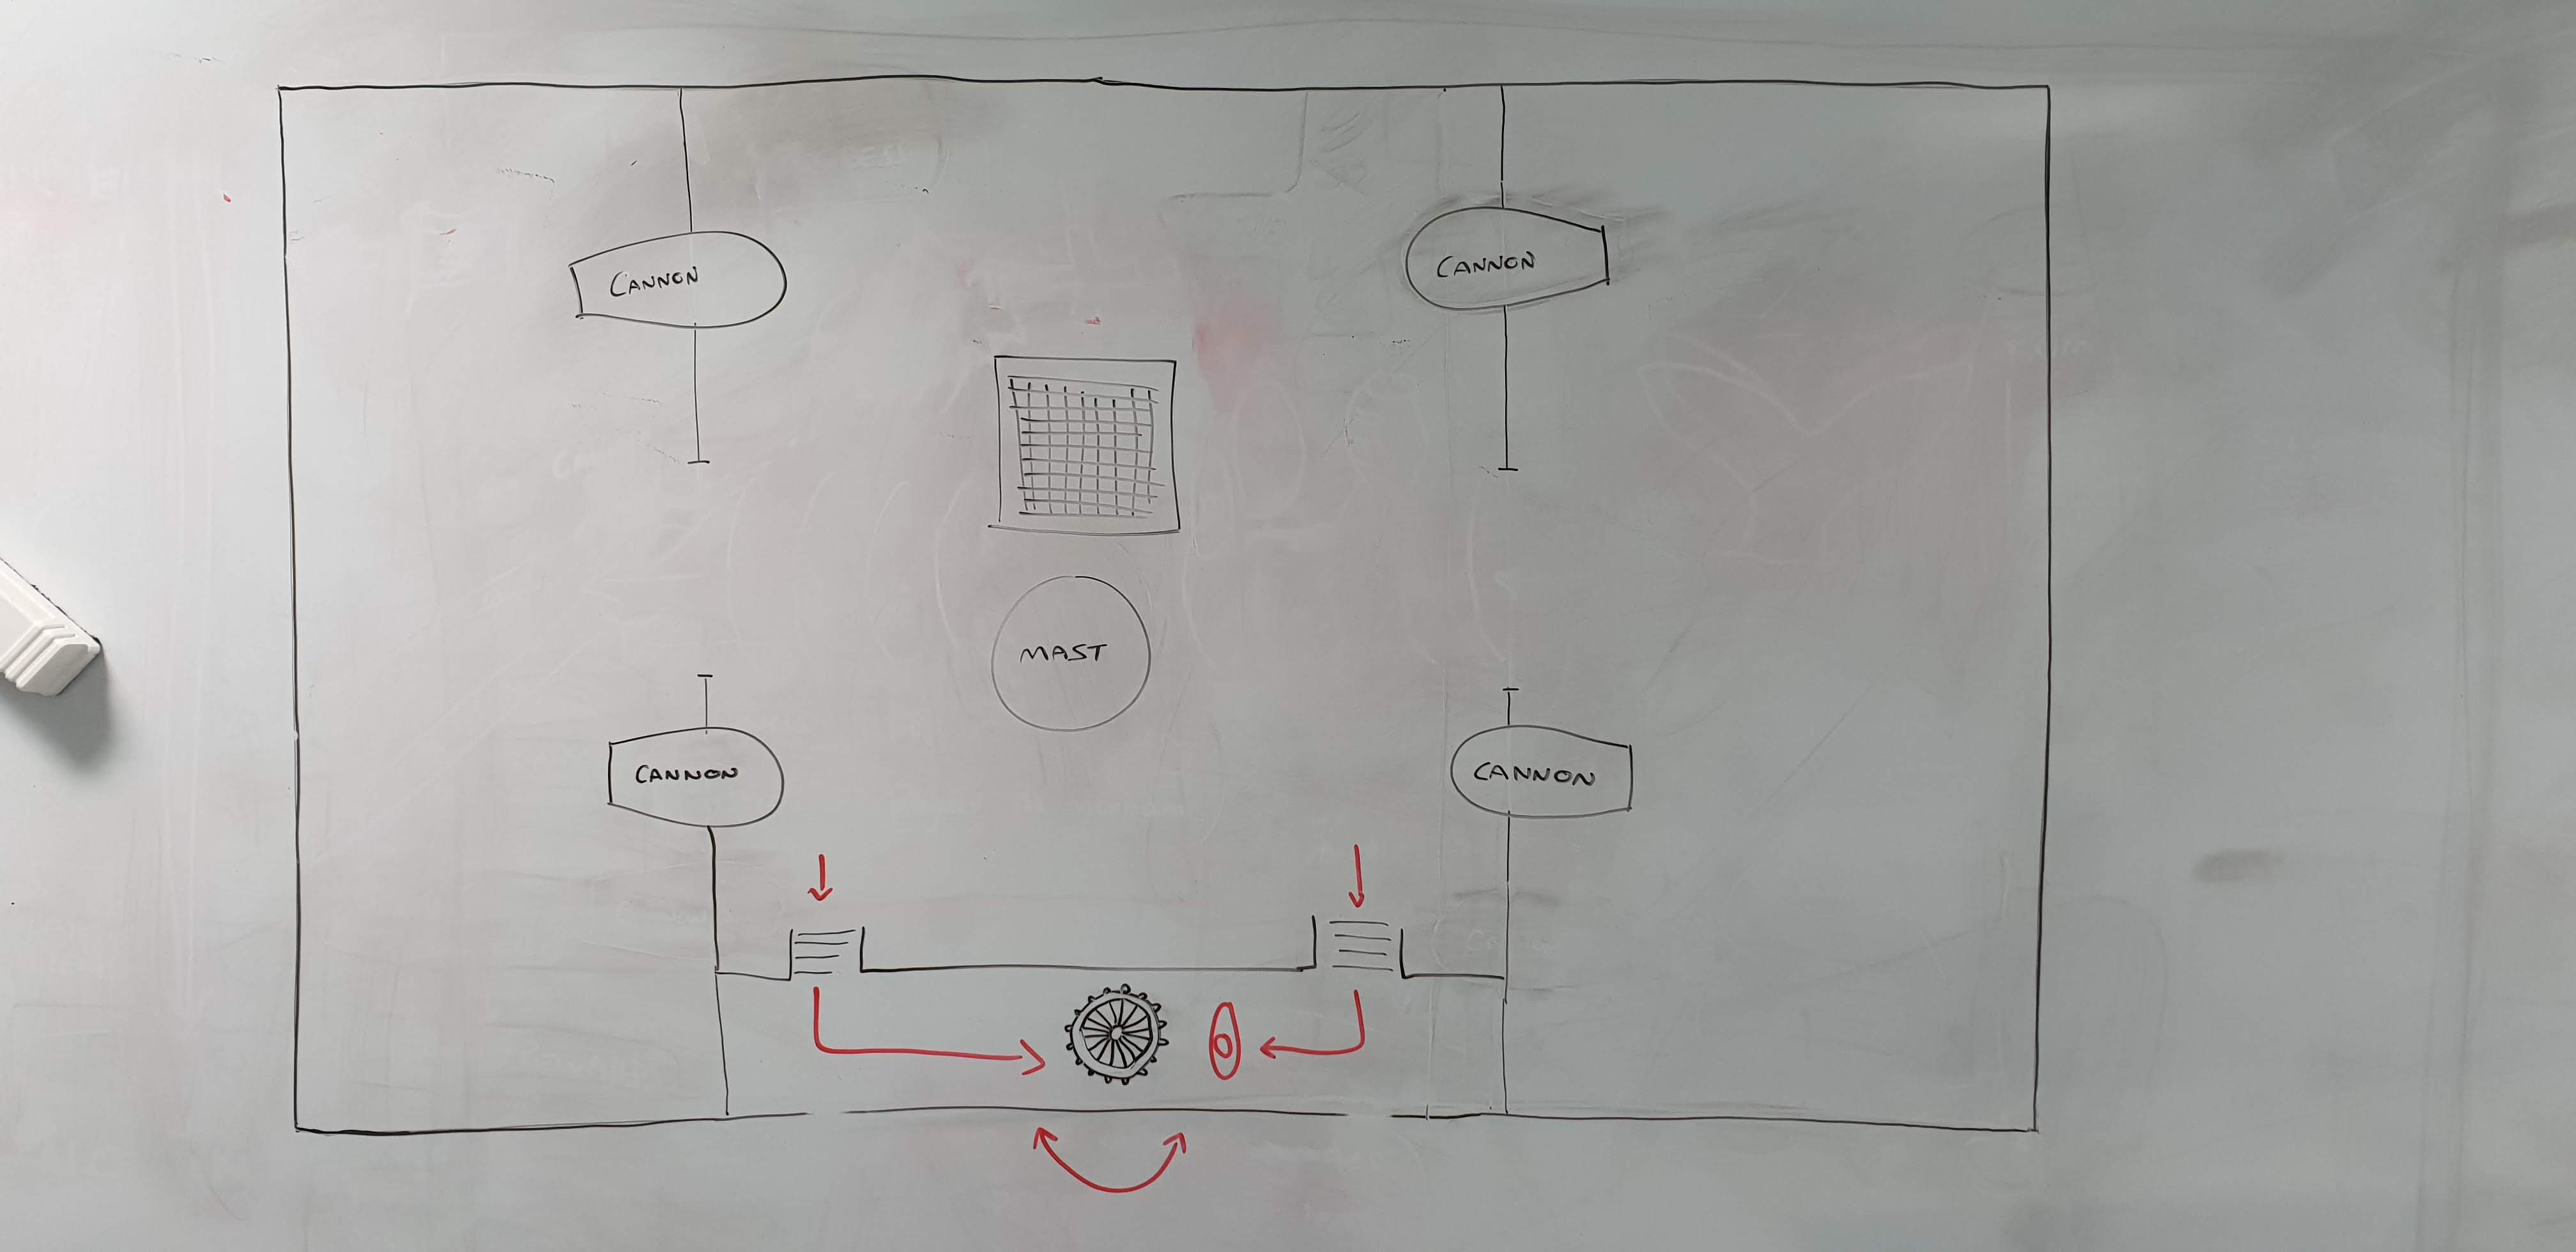 CANNON
CANNON
MAST
CANNON
CANNON